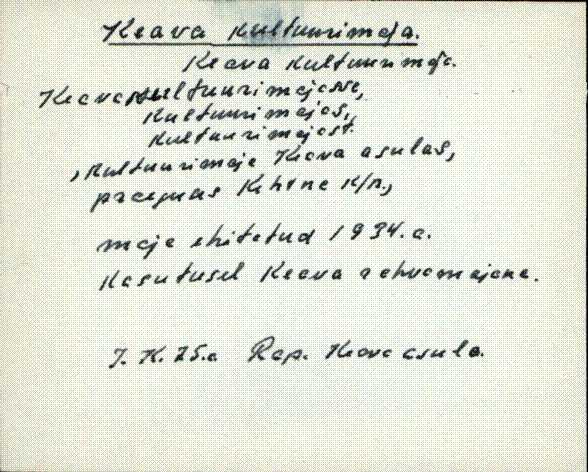 Keava kultuurimaja.
Keava kultuurimaja.
Keava kultuurimajasse,
kultuurimajas,
kultuurimajast.
, kultuurimaja Keava asulas,
praegusas Kehtna k/n.,
maja ehitatud 1934. a.
Kasutusel Keava rahvamajana.
J. K. 75.a Rap. Keava asula.